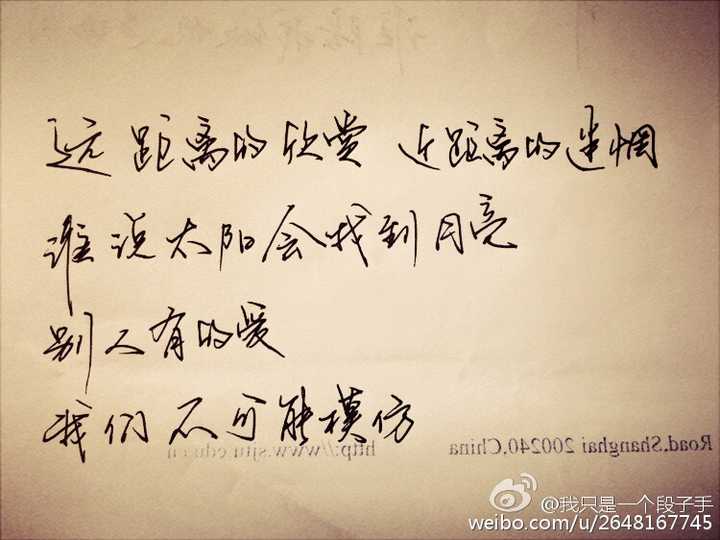 远距离的欣赏 近距离的迷惘
谁说太阳会找到月亮
别人有的爱
我们不可能模仿
Road,Shanghai 200240,China
http://www.sjtu.edu.cn
@我只是一个段子手
weibo.com/u/2648167745